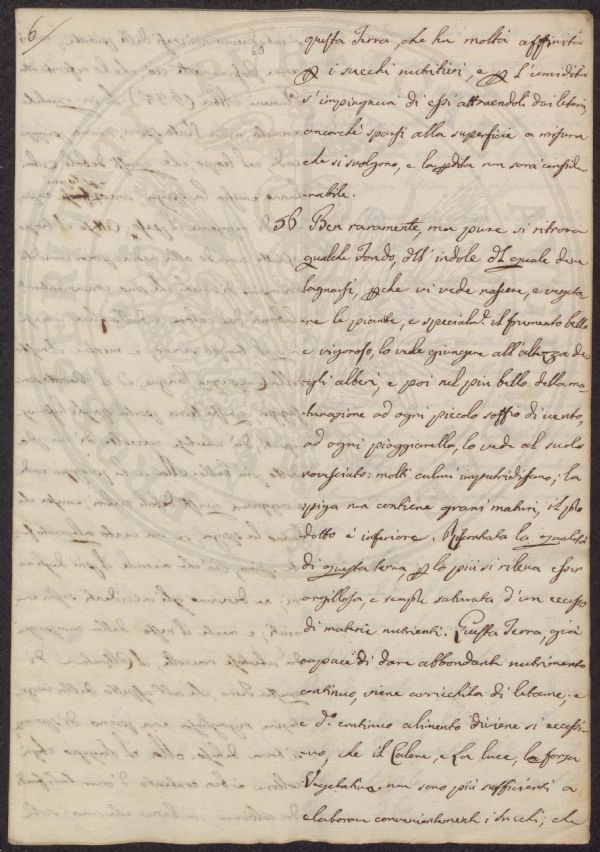 6
60
questa Terra, che ha molta affinità
per i succhi nutritivi, e per l'umidità
s'impingua di essi attraendoli dai letami
ancorchè sparsi alla superficie a misura
che si svolgono, e la perdita non sarà conside
rabile.
56 Ben raramente, ma pure si ritrova
qualche Fondo, dell'indole del quale deve
lagnarsi, perche vi vede nascere, e vegeta
re le piante, e specialm.e il frumento bello
e vigoroso, lo vede giungere all'altezza de
gli alberi, e poi nel più bello della ma
turagione ad ogni piccolo soffio di vento,
ad ogni pioggiarella, lo vede al suolo
rovesciato: molti culmi imputridiscono; la
spiga non contiene grani maturi, il pro
dotto è inferiore. la qualità
di questa terra, per lo più si rileva esser
argillosa, e sempre saturata d'un eccesso
di materie nutrienti. Questa Terra, già
capace di dare abbondante nutrimento
continuo, viene arricchita di letame; e
e d.o continuo alimento diviene sì eccessi
vo, che il Calore, e la luce, la forza
Vegetativa non sono più sufficienti a
elaborare convenientemente i succhi; che